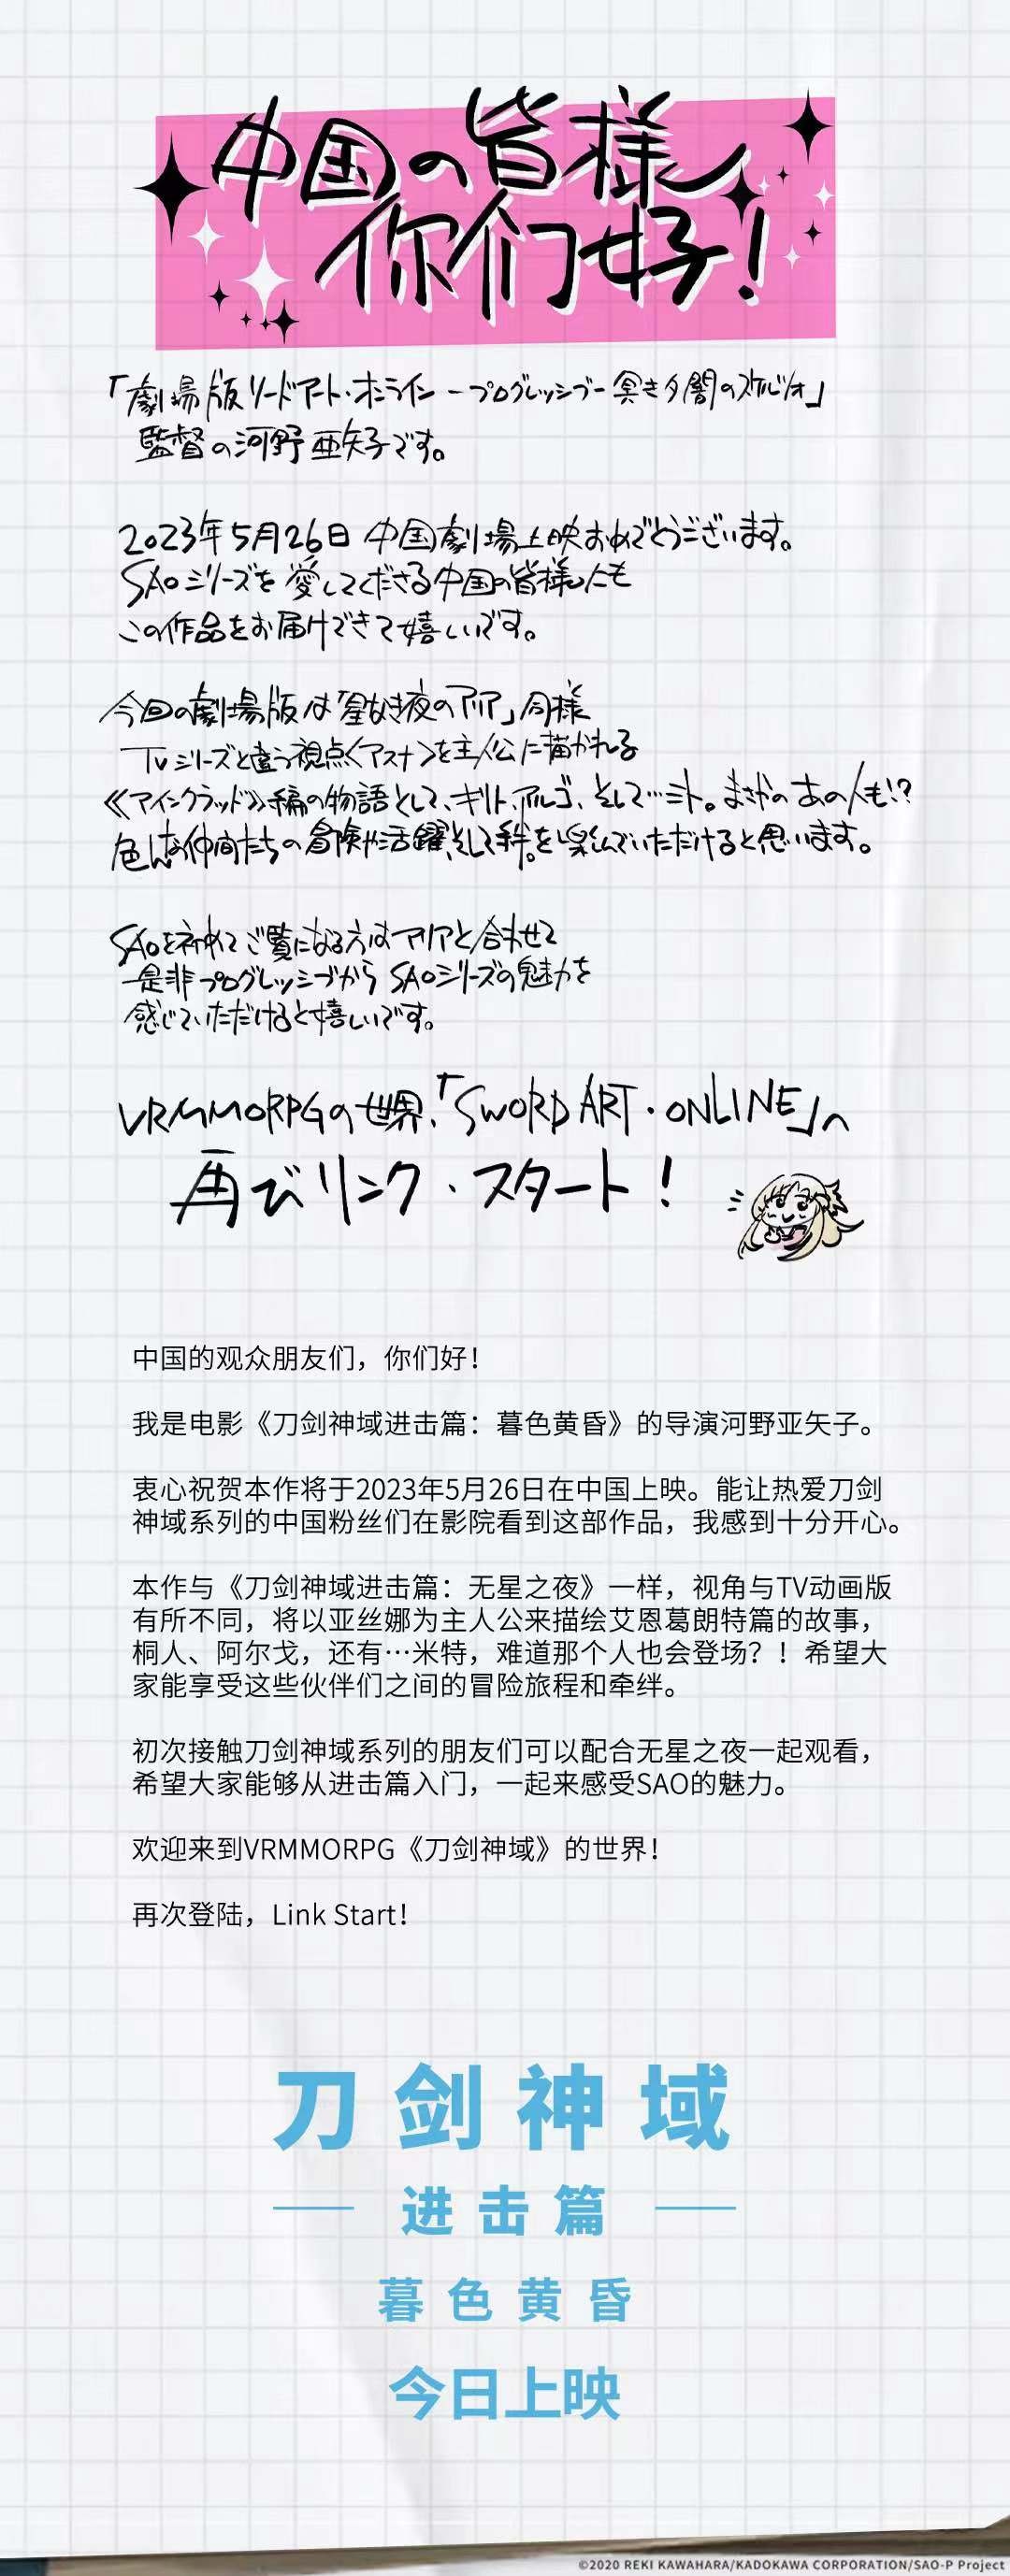 中国の皆様
你们好！
「劇場版ソードアート・オンライン－プログレッシブ－冥き夕闇のスケルツォ」
監督の河野亜矢子です。
2023年5月26日 中国劇場上映おめでとうございます。
SAOシリーズを愛してくださる中国の皆様にも
この作品をお届けできて嬉しいです。
今回の劇場版は「星なき夜のアリア」同様
TVシリーズと違う視点〈アスナ〉を主人公に描かれる
《アインクラッド》編の物語として、キリト、アルゴ、そして…ミト。まさかのあの人も!?
色んな仲間たちの冒険や活躍、そして絆。を楽しんでいただけると思います。
SAOを初めてご覧になる方はアリアと合わせて
是非プログレッシブから SAOシリーズの魅力を
感じていただけると嬉しいです。
VRMMORPGの世界、「SWORD ART・ONLINE」へ
再びリンク・スタート！
中国的观众朋友们，你们好！
我是电影《刀剑神域进击篇：暮色黄昏》的导演河野亚矢子。
衷心祝贺本作将于2023年5月26日在中国上映。能让热爱刀剑
神域系列的中国粉丝们在影院看到这部作品，我感到十分开心。
本作与《刀剑神域进击篇：无星之夜》一样，视角与TV动画版
有所不同，将以亚丝娜为主人公来描绘艾恩葛朗特篇的故事，
桐人、阿尔戈，还有…米特，难道那个人也会登场？！希望大
家能享受这些伙伴们之间的冒险旅程和牵绊。
初次接触刀剑神域系列的朋友们可以配合无星之夜一起观看，
希望大家能够从进击篇入门，一起来感受SAO的魅力。
欢迎来到VRMMORPG《刀剑神域》的世界！
再次登陆，Link Start！
刀剑神域
进击篇
暮色黄昏
今日上映
©2020 REKI KAWAHARA/KADOKAWA CORPORATION/SAO-P Project